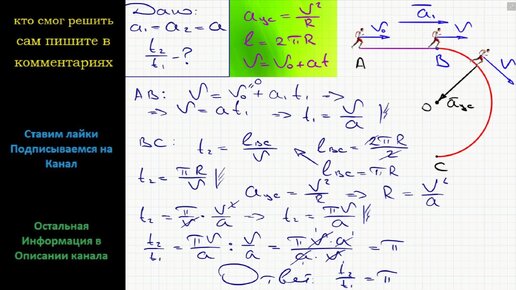 кто смог решить
сам пишите в
комментариях
Ставим лайки
Подписываемся на
Канал
Остальная
Информация в
Описании канала
Дано:
a₁ = a₂ = a
t₂/t₁ - ?
a_цс = V²/R
l = 2πR
V = V₀ + at
a₁
V₀ V V
A B
O a_цс
C
AB: V = V₀ + a₁t₁ ⇒ 0
⇒ V = at₁ ⇒ t₁ = V/a
BC: t₂ = l_BC/V l_BC = 2πR/2
t₂ = πR/V l_BC = πR
a_цс = V²/R ⇒ R = V²/a
t₂ = π/V · V²/a ⇒ t₂ = πV/a
t₂/t₁ = πV/a : V/a = π·V·a/a·V = π
Ответ: t₂/t₁ = π